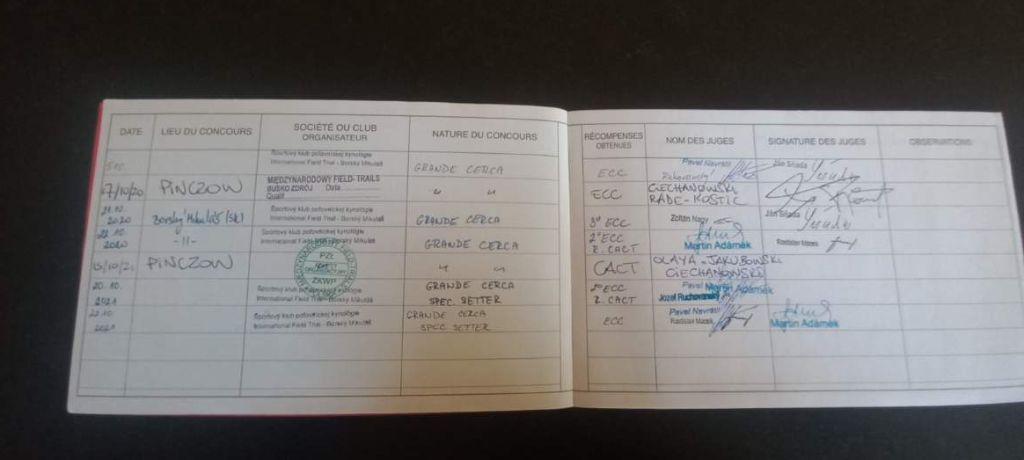 DATE LIEU DU CONCOURS SOCIÉTÉ OU CLUB ORGANISATEUR NATURE DU CONCOURS RÉCOMPENSES OBTENUES NOM DES JUGES SIGNATURE DES JUGES OBSERVATIONS
Športový klub poľovníckej kynológie
International Field Trial - Borský Mikuláš
GRANDE CERCA ECC Pavel Navrátil Ján Šišada
7/10/20 PINCZOW MIĘDZYNARODOWY FIELD-TRAILS
BUSKO ZDRÓJ Data
" " ECC CIECHANOWSKI
RADE-KOSTIC
21.10.
2020 Športový klub poľovníckej kynológie
International Field Trial - Borský Mikuláš
GRANDE CERCA 3° ECC Zoltán Nagy Ján Šišada
22.10.
2020 -11- Športový klub poľovníckej kynológie
International Field Trial - Borský Mikuláš
GRANDE CERCA 2° ECC
R. CACT Martin Adámek Rastislav Masek
PINCZOW PZŁ
ZKWP
" " CACT OLAYA - JAKUBOWSKI
CIECHANOWSKI
20.10.
2021 Športový klub poľovníckej kynológie
International Field Trial - Borský Mikuláš
GRANDE CERCA
SPEC. SETTER 2° ECC
R. CACT Martin Adámek
Jozef Ruchovanský
22.10.
2021 Športový klub poľovníckej kynológie
International Field Trial - Borský Mikuláš
GRANDE CERCA
SPEC SETTER ECC Pavel Navrátil
Rastislav Masek Martin Adámek